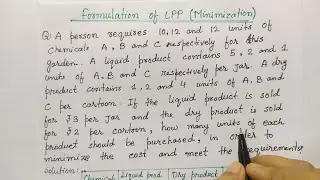 Formulation of LPP (Minimization)
Q: A person requires 10, 12 and 12 units of
chemicals A, B and C respectively for his
garden. A liquid product contains 5, 2 and 1
units of A, B and C respectively per Jar. A dry
product contains 1, 2 and 4 units of A, B and
C per cartoon. If the liquid product is sold
for ₹3 per jar and the dry product is sold
for ₹2 per cartoon, how many units of each
product should be purchased, in order to
minimize the cost and meet the requirements?
Solution:
Chemical Liquid prod Dry product